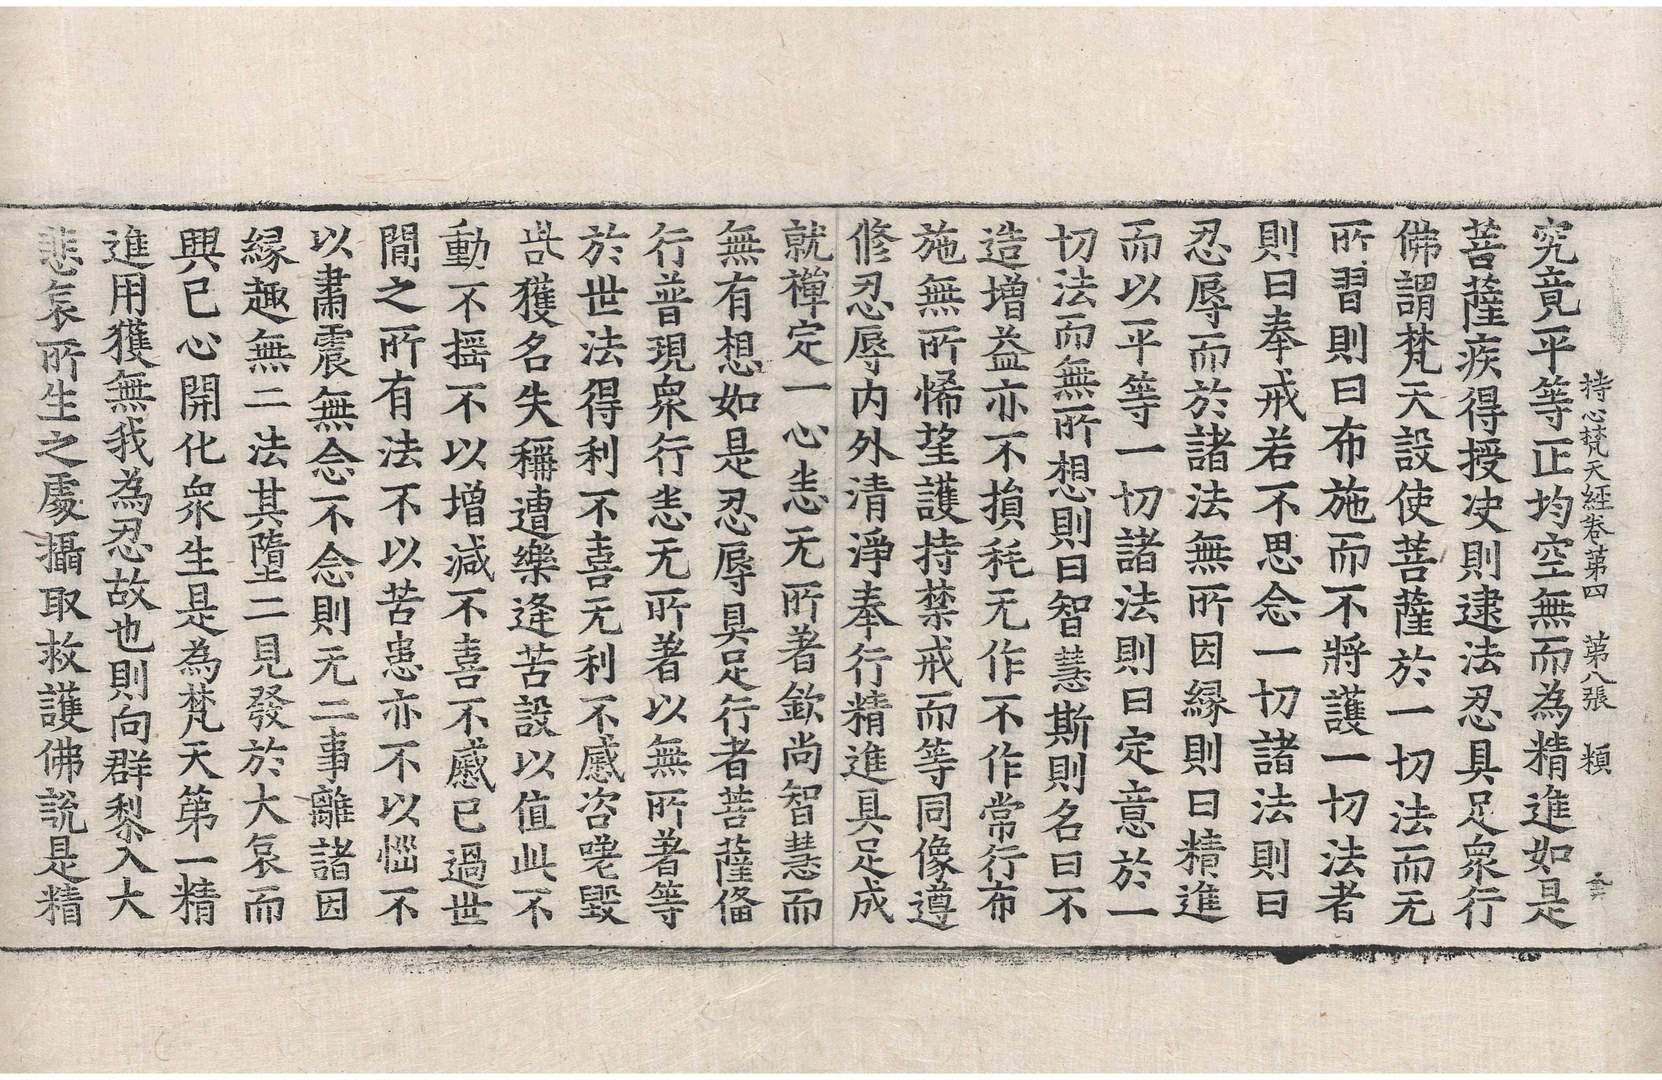 持心梵天經卷第四 第八張 頬
究竟平等正均空無而為精進如是
菩薩疾得授决則逮法忍具足衆行
佛謂梵天設使菩薩於一切法而无
所習則曰布施而不將護一切法者
則曰奉戒若不思念一切諸法則曰
忍辱而於諸法無所因縁則曰精進
而以平等一切諸法則曰定意於一
切法而無所想則曰智慧斯則名曰不
造增益亦不損秏无作不作常行布
施無所悕望護持禁戒而等同像遵
修忍辱内外清淨奉行精進具足成
就禪定一心恚无所著欽尚智慧而
無有想如是忍辱具足行者菩薩俻
行普現衆行恚无所著以無所著等
於世法得利不喜无利不慼咨嗟毀
呰獲名失稱遭樂逢苦設以值此不
動不摇不以增減不喜不慼已過世
間之所有法不以苦患亦不以惱不
以肅震無念不念則无二事離諸因
縁趣無二法其墮二見發於大哀而
興已心開化衆生是為梵天第一精
進用獲無我為忍故也則向群黎入大
悲哀所生之處攝取救護佛說是精